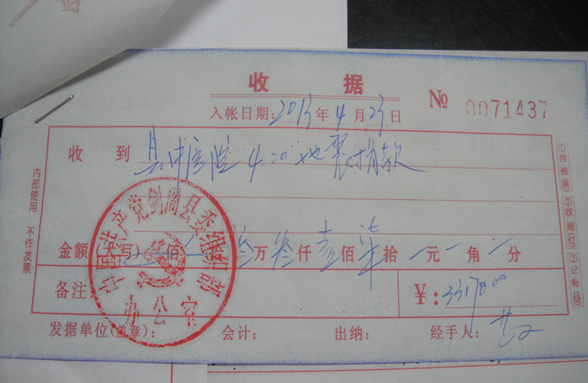 收 据
入帐日期：2013年4月23日 № 0071437
收 到 县中医院4.20地震捐款
金额（大写） 佰 叁万叁仟壹佰柒拾 元 角 分
备注 ¥：33170.00
发据单位(盖章)： 会计： 出纳： 经手人：
内部使用 不作发票
①存根(黑) ②收据(红) ③记帐(蓝)
中国共产党剑阁县委组织部
办公室